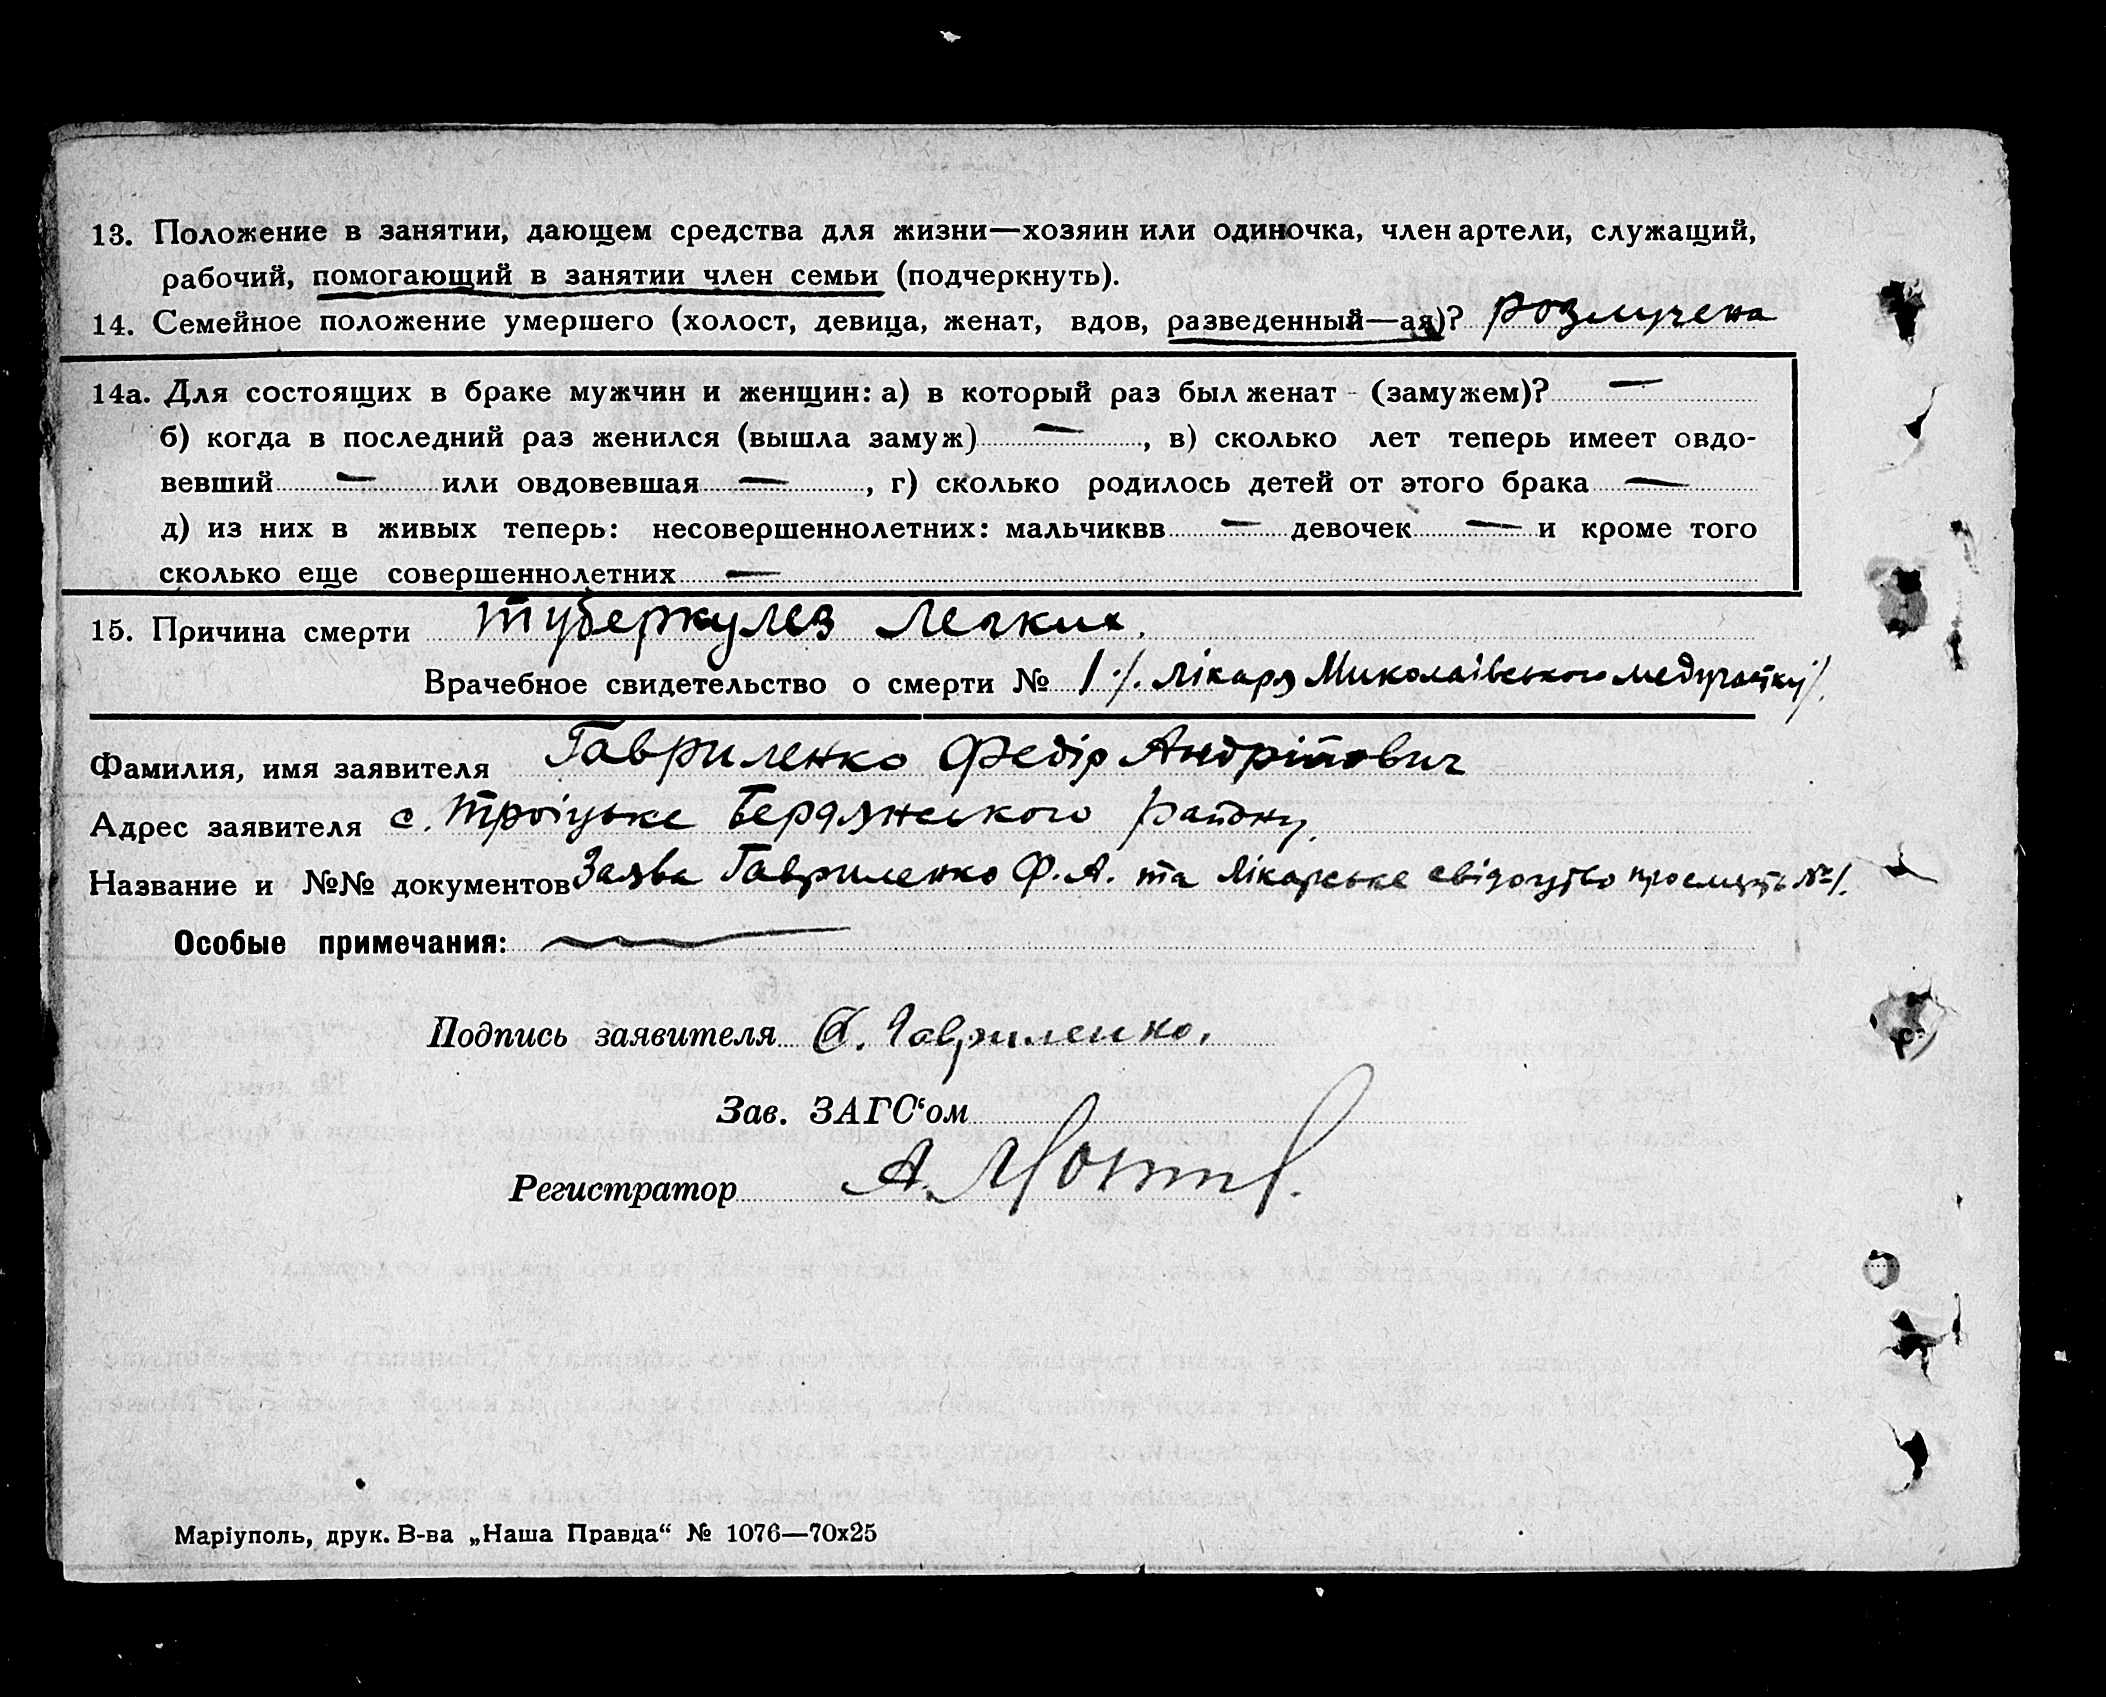 13. Положение в занятии, дающем средства для жизни—хозяин или одиночка, член артели, служащий,
рабочий, помогающий в занятии член семьи (подчеркнуть).
14. Семейное положение умершего (холост, девица, женат, вдов, разведенный—ая)? розлучена
14а. Для состоящих в браке мужчин и женщин: а) в который раз был женат - (замужем)? —
б) когда в последний раз женился (вышла замуж) — , в) сколько лет теперь имеет овдо-
вевший — или овдовевшая — , г) сколько родилось детей от этого брака —
д) из них в живых теперь: несовершеннолетних: мальчиквв — девочек — и кроме того
сколько еще совершеннолетних —
15. Причина смерти туберкулез легких.
Врачебное свидетельство о смерти № 1 /. лікаря Миколаївського медучастку/.
Фамилия, имя заявителя Гавриленко Федір Андрійович
Адрес заявителя с. Троіцьке Бердянського району.
Название и №№ документов Заява Гавриленко Ф. А. та лікарське свідоцтво про смерть №1.
Особые примечания:
Подпись заявителя Ф. Гавриленко.
Зав. ЗАГС‘ом
Регистратор А.
Маріуполь, друк. В-ва „Наша Правда“ № 1076—70х25